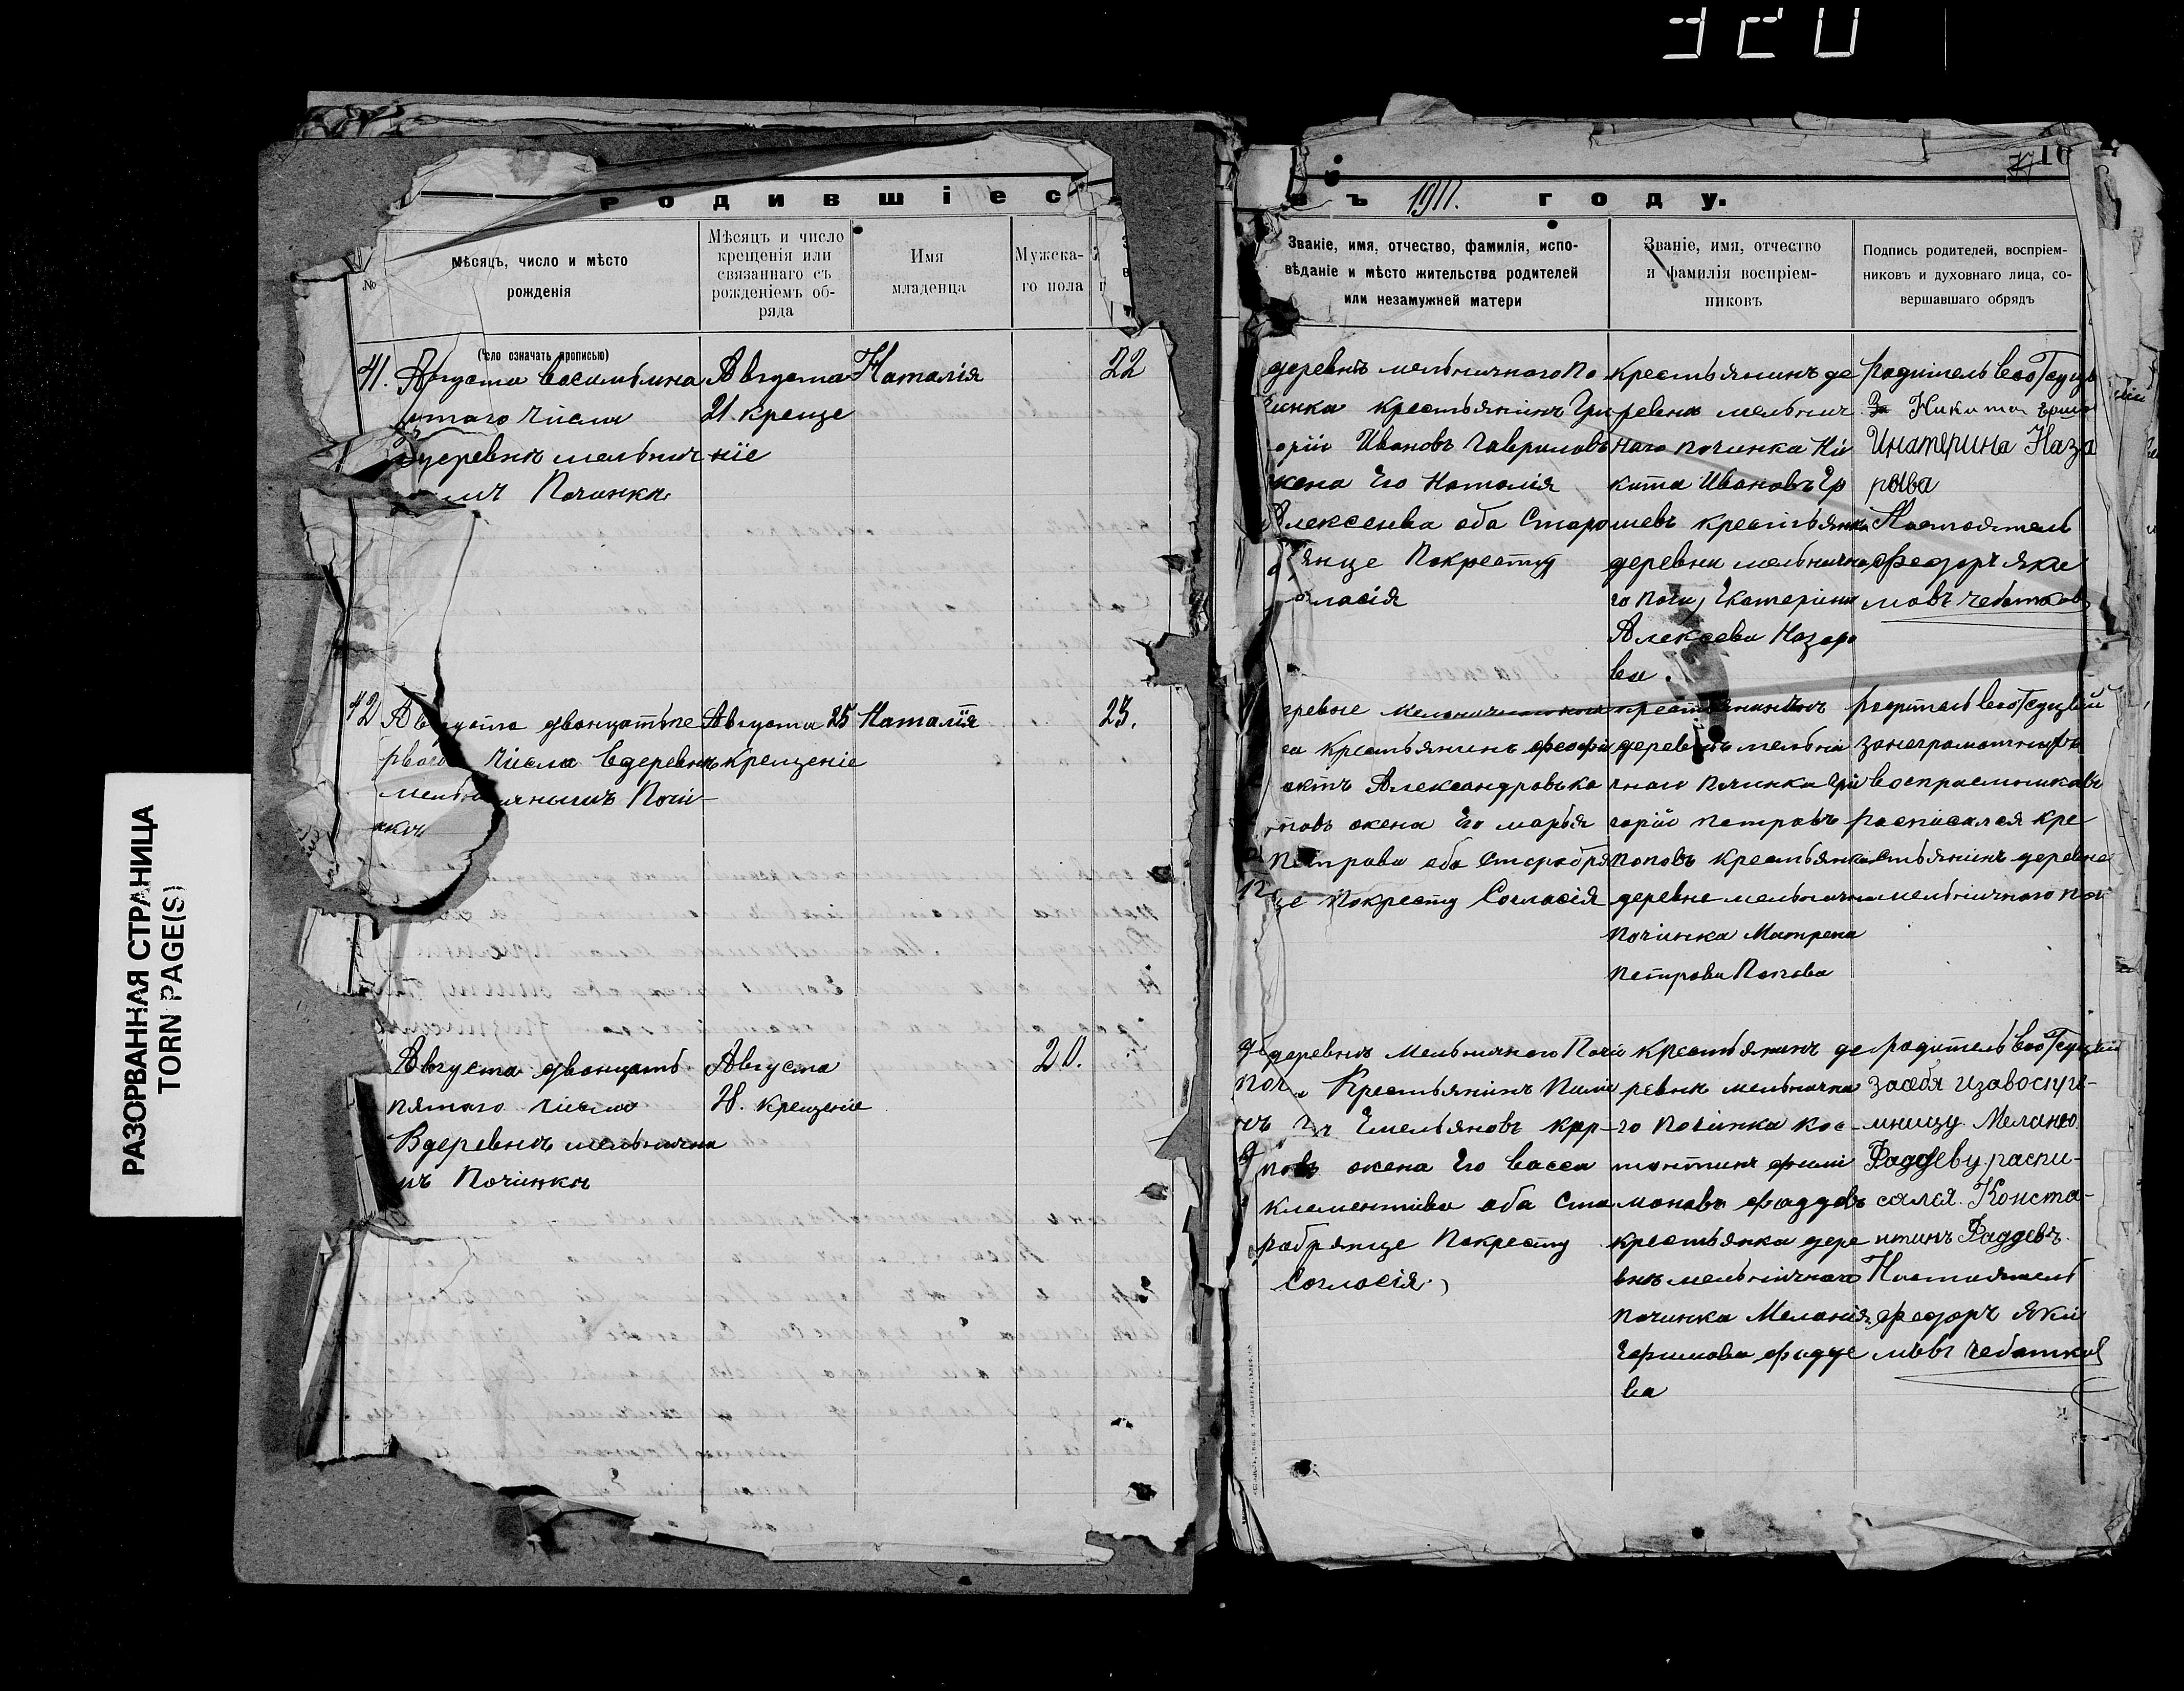 РАЗОРВАННАЯ СТРАНИЦА
TORN PAGE(S)
320
Родившіес
ъ 1911. году.
№
Мѣсяцъ, число и мѣсто
рожденія
Мѣсяцъ и число
крещенія или
связаннаго съ
рожденіемъ об-
ряда
Имя
младенца
Мужска-
го пола
Званіе, имя, отчество, фамилія, испо-
вѣданіе и мѣсто жительства родителей
или незамужней матери
Званіе, имя, отчество
и фамилія воспріем-
никовъ
Подпись родителей, воспріем-
никовъ и духовнаго лица, со-
вершавшаго обрядъ
(Число означать прописью)
41. Августа восемьна
цтаго числа
Вдеревнѣ мельнич
Починкѣ
Августа
21. креще
ніе
Наталія
22
деревнѣ мельничнаго По
чинка крестьянинъ Гри
орій Ивановъ Гавриловъ
жена Его Наталія
Алексеива оба Старо
янце Покресту
гласія
крестьянинъ де
ревни мельнич
наго починка Ни
кита Ивановъ Ер
шевъ крестьянка
деревни мельнично
го почи, Екатерина
Алексеева Назаро
ва.
Родитель
За Никита
Икатирина Наза
рыва
Настоятель
Федоръ Яки
мовъ Чебатков
42 Августа дванцатьпе
рваго числа вдеревнѣ
мельничнымъ Почи-
нкѣ
Августа 25
крещеніе
Наталія
23.
крестьянинъ Феофи
актъ Александровъ ка
жена Его марья
Петрова оба Старобря
це Покресту Согласія
деревнѣ мельни
чнаго починка Гри
горій Петровъ
Поповъ крестьянка
деревне мельнична
починка Матрена
Петрова Попова
занеграмотныхъ
воспраемниковъ
росписался кре
стьянинъ деревне
мельничнаго поч
Августа дванцать
пятаго числа
Вдеревнѣ мельнична
мъ Починкѣ
Августа
28. крещеніе
20.
деревнѣ мельничнаго Почи
Крестьянинъ Пиме
нъ Емельяновъ кар-
повъ жена Его Васса
клементива оба Ста
робрянце Покресту
Согласія
крестьянинъ де
ревни мельнична
го починка Кос-
тонтинъ Фили
моновъ Фаддевъ
крестьянка дере
внѣ мельничнаго
починка Меланія
Ефимова Фадде
ва
засебя изавоспуе-
мницу Меланю
Фаддеву распи-
сялся. Конста-
нтинъ Фаддевъ.
Настоятель
Федоръ Яки
мовъ Чебатков